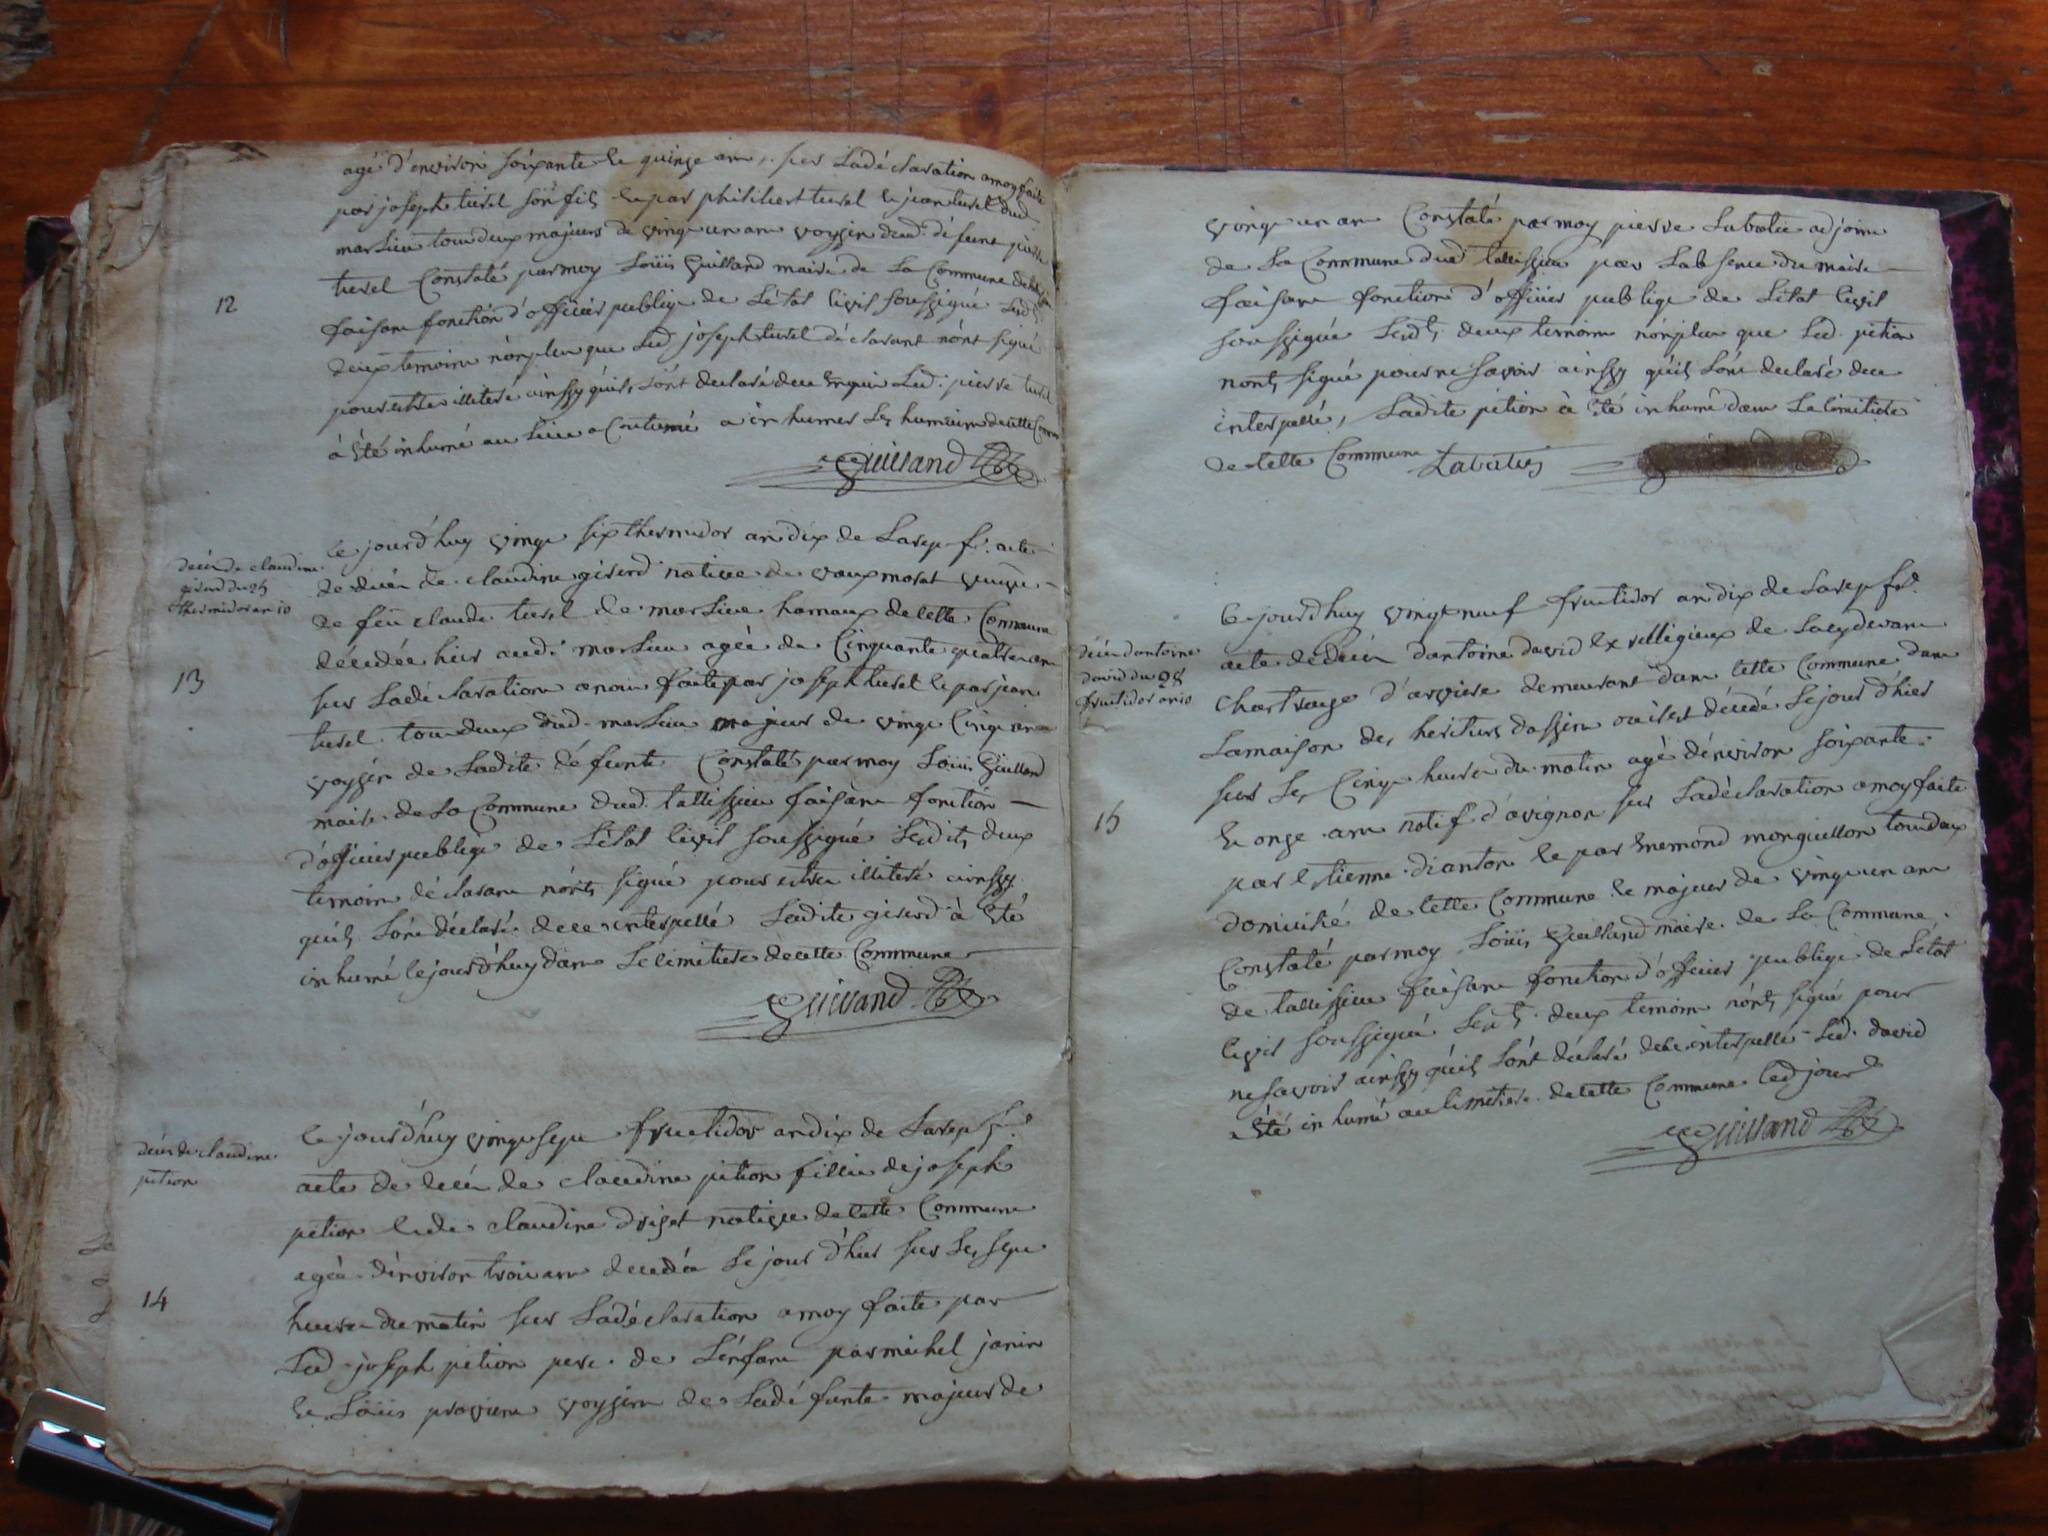 agé d'environ soixante & quinze ans, sur la déclaration a moy faite
par joseph turel son fils & par philibert turel & jean turel dud.
marlieu tou deux majeurs de vingt un ans voyzin dud. défunt pierre
turel Constaté par moy Loüis Guilland maire de la Commune
12
faisans fonction d'officier publique de l'état Civil soussigné Lesd.
deux temoins nonplus que led joseph turel déclarant n'ont signé
pour estre illiteré ainssy quils sont declaré de ce enquis Led. pierre turel
à été inhumé au lieu a Coutumé a inhumer les humains de cette Commune
Guilland
ce jourd'huy vingt six thermidor an dix de La rep. fr. acte
décès de claudine
girerd du 25
thermidor an 10
de décès de claudine girerd native de vaux morat veuve
de feu claude turel de marlieu hamaux de cette Commune
décédée hier aud. marlieu agée de Cinquante quatre ans
13
sur la déclaration a moi faite par joseph turel & par jean
turel tou deux dud. marlieu majeur de vingt Cinq ans
voyzin de ladite défunte Constaté par moy Loüis Guilland
maire de la Commune dud. tallissieu faisans fonction
d'officier publique de l'état Civil soussigné Lesdits deux
temoins déclarans n'ont signé pour estre illiteré ainssy
quils sont déclaré de ce interpellé Ladite girerd à été
inhumé ce jourd'huy dans le cimetiere de cette Commune
Guilland
ce jourd'huy vingt sept fructidor an dix de la rep fr.
décès de claudine
pition
acte de décès de claudine pition fillie de joseph
pition & de claudine drizet native de cette Commune
agée d'environ trois ans decedée le jour d'hier sur les sept
14
heures du matin sur la déclaration a moy faite par
Led. joseph pition pere de l'enfant par michel janin
& Loüis voyzin de la défunte majeur de
vingt un ans Constaté par moy pierre Labatie adjoint
de la Commune dud tallissieu par l'absence du maire
faisans fonction d'officier publique de l'état Civil
soussigné Lesdts deux temoins nonplus que Led. pition
n'ont signé pour ne savoir ainssy quils sont declaré de ce
interpellé, Ladite pition à été inhumé dans Le Cimitiere
de cette Commune Labatie
Ce jourd'huy vingt neuf fructidor an dix de la rep fr.
décès d'antoine
david du 28
fructidor an 10
acte de décès d'antoine david Ex relligieux de la cy devant
chartreuse d'arviere demeurant dans cette Commune dans
la maison des heritiers dassin ou il est décédé le jour d'hier
sur les Cinq heures du matin agé d'environ soixante
15
& onze ans natif d'avignon sur la déclaration a moy faite
par Etienne dianton & par Enemond monguillon tou deux
domicilié de cette Commune & majeur de vingt un ans
Constaté par moy Loüis Guilland maire de la Commune
de tallissieu faisans fonction d'officier publique de l'état
Civil soussigné Lesdts deux temoins n'ont signé pour
ne savoir ainssy quils sont déclaré de ce interpellé Led. david
a été inhumé au Cimetiere de cette Commune led jour
Guilland